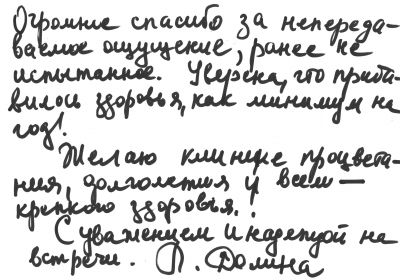 Огромние спасибо за непереда-
ваемое ощущение, ранее не
испытанное. Уверена, что приба-
вилось здоровья, как минимум на
год!
Желаю клинике процвета-
ния, долголетия и всем —
крепкого здоровья.!
С уважением и надеждой на
встречи. Л. Долина